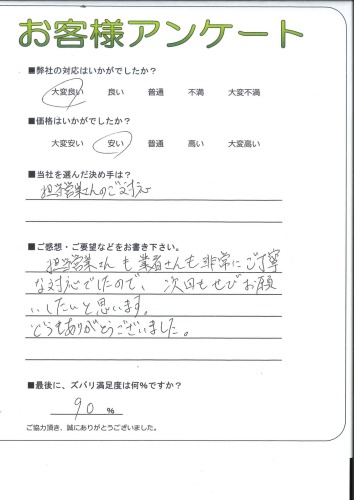 お客様アンケート
■弊社の対応はいかがでしたか？
大変良い 良い 普通 不満 大変不満
■価格はいかがでしたか？
大変安い 安い 普通 高い 大変高い
■当社を選んだ決め手は？
担当営業さんのご対応
■ご感想・ご要望などをお書き下さい。
担当営業さんも業者さんも非常にご丁寧
な対応でしたので、次回もぜひお願
いしたいと思います。
どうもありがとうございました。
■最後に、ズバリ満足度は何％ですか？
90 %
ご協力頂き、誠にありがとうございました。